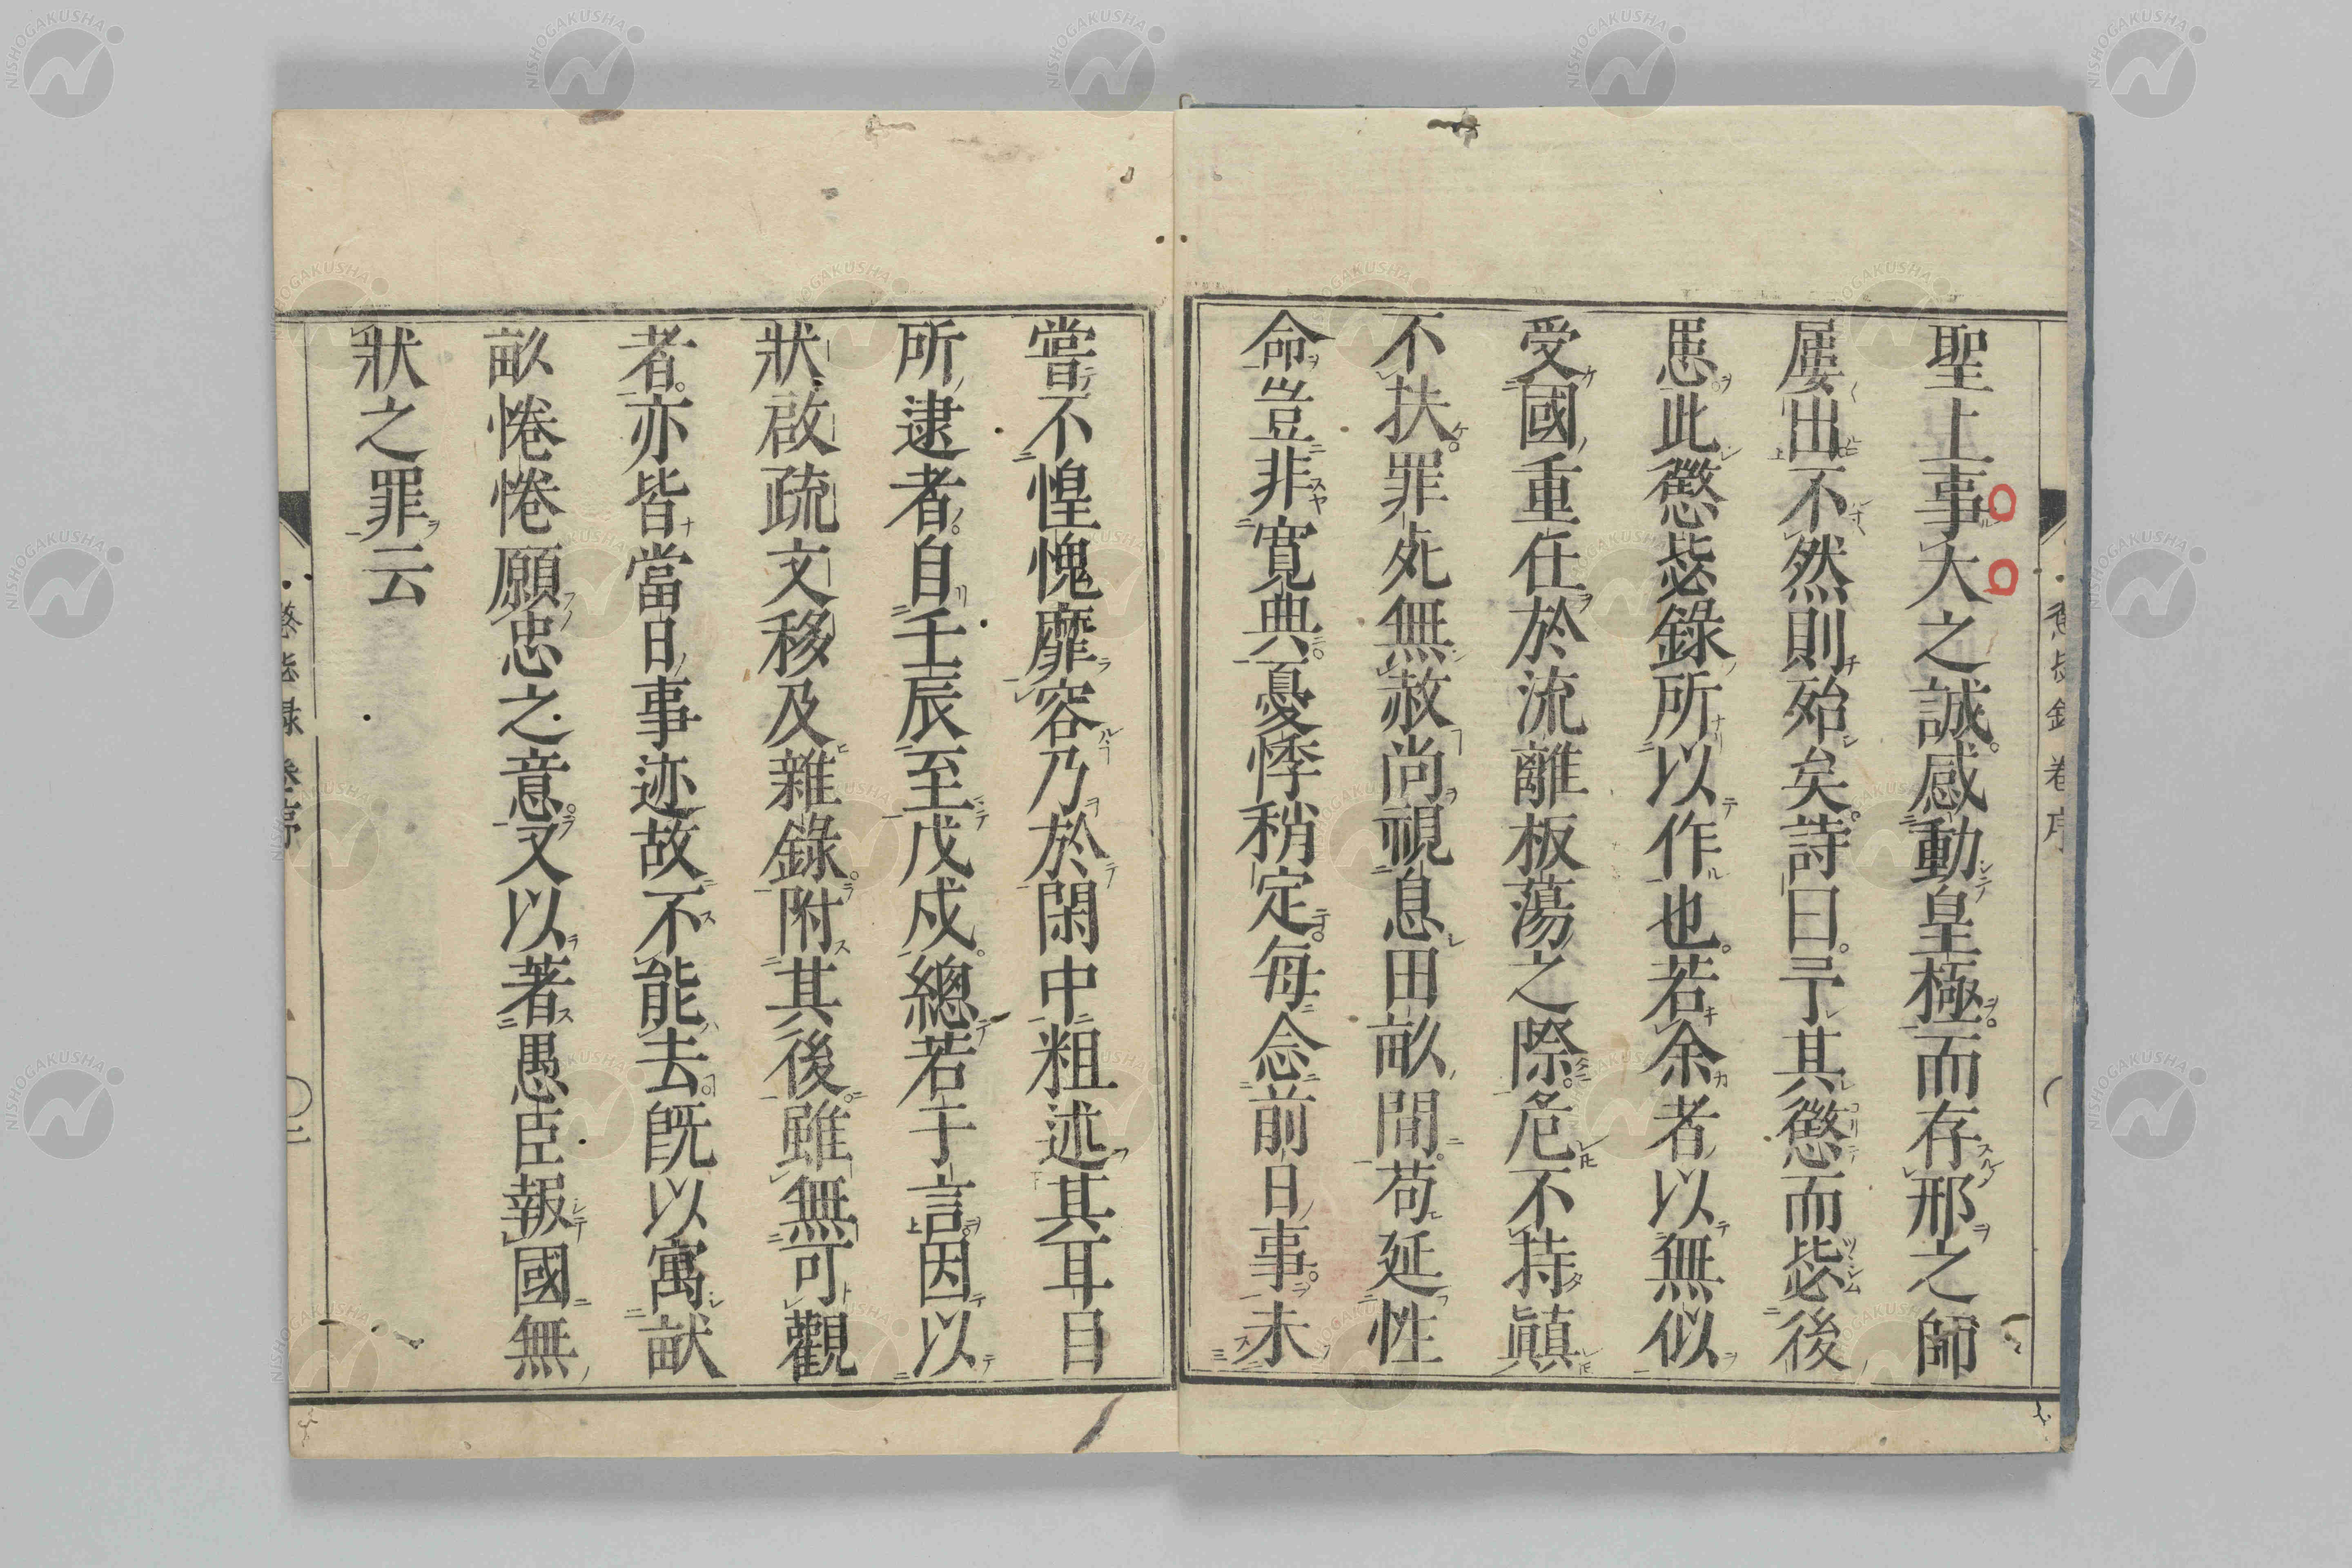 聖上事大之誠感動皇極而存邢之師
屢出不然則殆矣詩曰予其懲而毖後
患此懲毖錄所以作也若余者以無似
受國重任於流離板蕩之際危不持顚
不扶罪死無赦尚視息田畝間苟延性
命豈非寬典憂悸稍定每念前日事未
嘗不惶愧靡容乃於閑中粗述其耳目
所逮者自壬辰至戊戌總若干言因以
狀啟疏文移及雜錄附其後雖無可觀
者亦皆當日事迹故不能去既以寓畎
畝惓惓願忠之意又以著愚臣報國無
狀之罪云
懲毖録 卷序
二
NISHOGAKUSHA